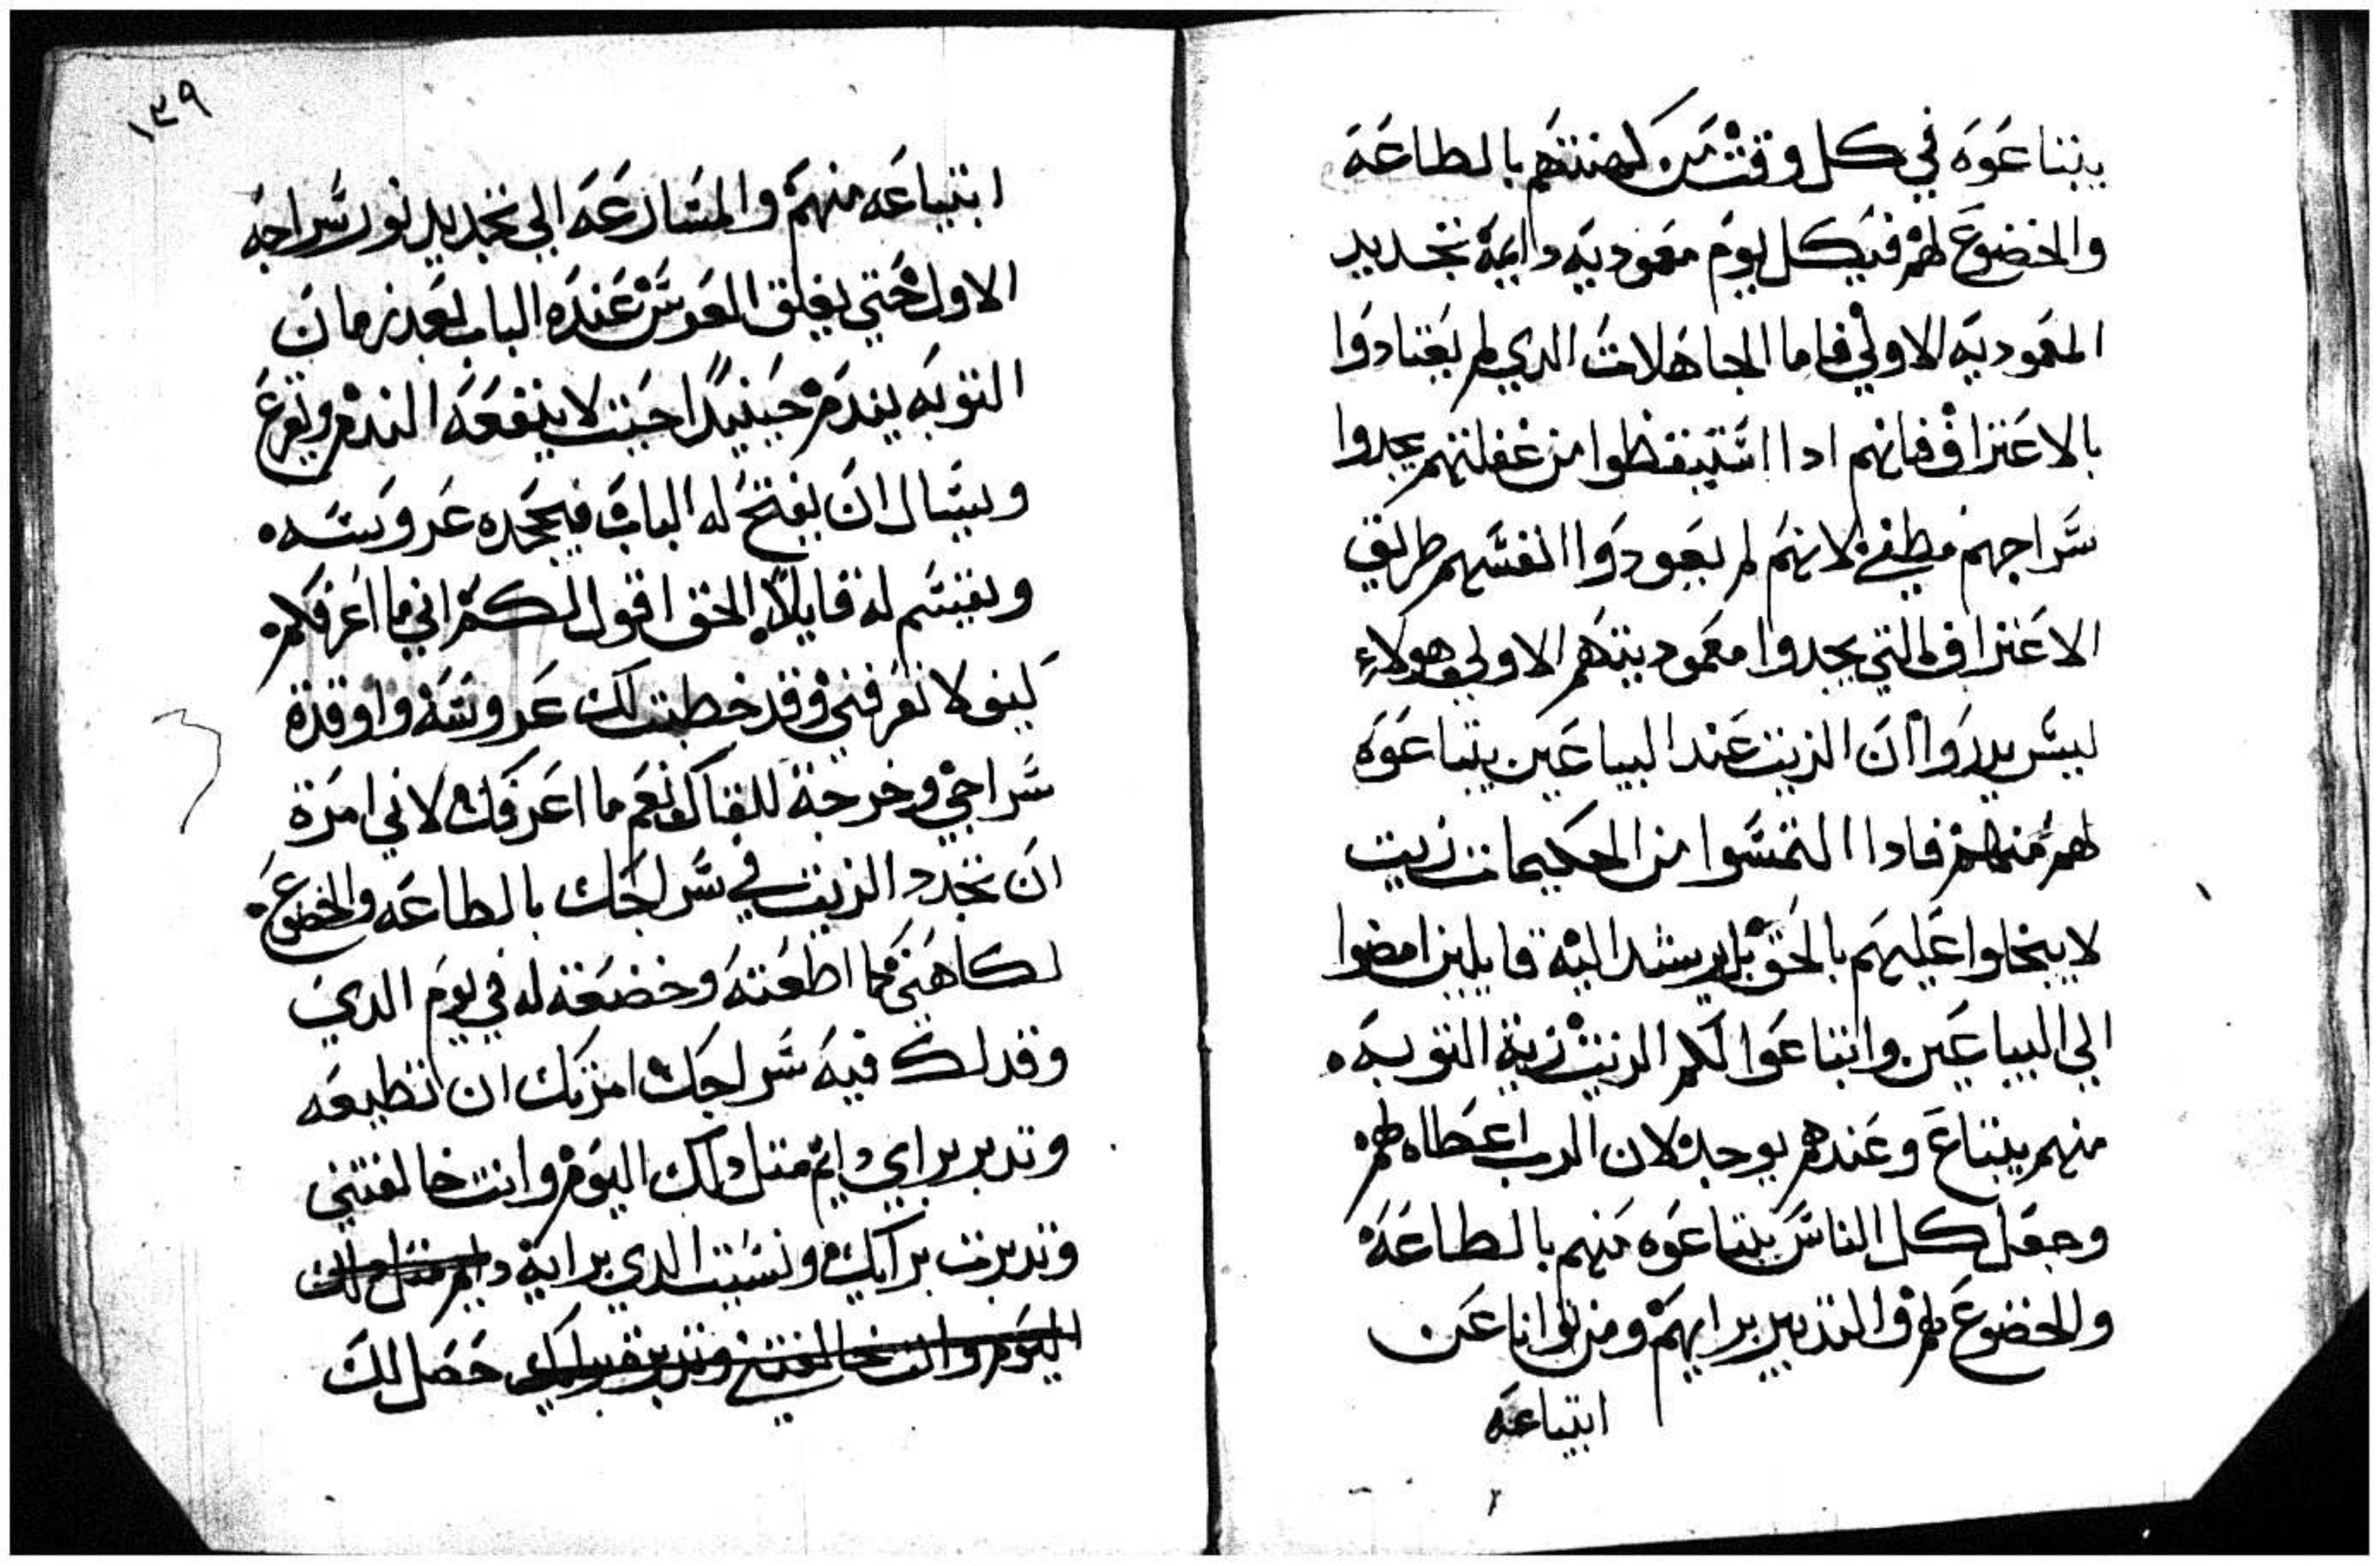 يبتاعوه في كل وقت من كهنتهم بالطاعه
والخضوع لهم فيكل يوم معموديه دايمة بتجديد
المعموديه الاولي فاما الجاهلات الدي لم يعتادوا
بالاعتراف فانهم ادا استيقظوا من غفلتهم يجدوا
سراجهم مطفي لانهم لم يعودوا انفسهم طريق
الاعتراف التي يجدوا معموديتهم الاولي وهولاء
ليس يدروا ان الزيت عند البياعين يتباعوه
لهم منهم فادا التمسوا من الحكيمات زيت
لا يبخلوا عليهم بالحق بل يرشد اليه قايلين امضوا
الي البياعين وابتاعوا لكم الزيت زية التوبه
منهم يبتاع وعندهم يوجد لان الرب اعطاه لهم
وجعل كل الناس يبتاعوه منهم بالطاعه
والخضوع لهم والتدبير برايهم ومن توانا عن
ابتياعه
١٣٩
ابتياعه منهم والمسارعه الي تجديد نور سراجه
الاول حتي يغلق العريس عنده الباب بعد زمان
التوبه يندم حينيدا حيت لا ينفعه الندم ويقرع
ويسال ان يفتح له الباب فيجحده عروسه
ويقسم له قايلا الحق اقول لكم اني ما اعرفكم
كيف لا تعرفني وقد خطبت لك عروسة واوقدة
سراجي وخرجة للقاك نعم ما اعرفك لاني امرة
ان تجدد الزيت في سراجك بالطاعه والخضوع
لكاهني كما اطعته وخضعة له في يوم الدي
وقد لك فيه سراجك امرتك ان تطيعه
وتدبر براي دايم متل دلك اليوم وانت خالفتني
وتدبرت برايك ونسيت الدي براية دايم متل دلك
اليوم وانت خالفتني وتدبرت برايك حصل لك